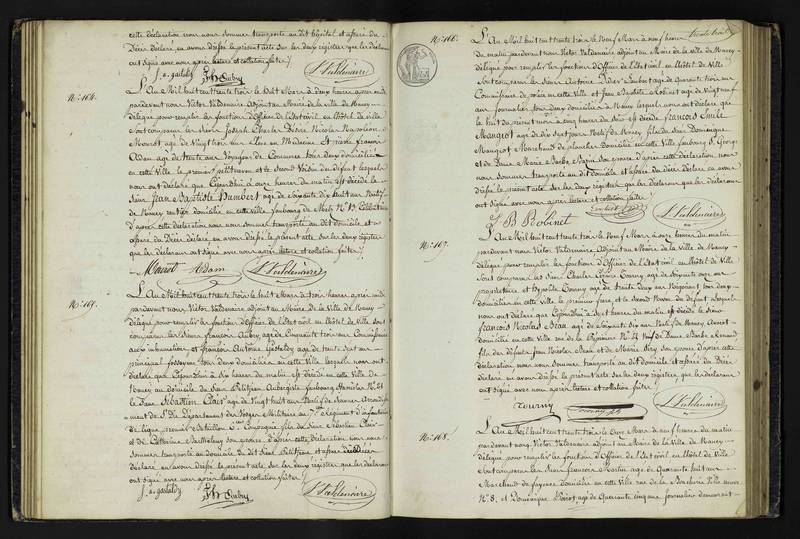 cette déclaration nous nous sommes transporté au dit hôpital et assuré du
Décès déclaré, en avons dressé le présent acte sur les deux registres que les déclarans
ont signé avec nous après lecture et collation faite /.
J. a. gastaldy Fs Aubry V. Valdenaire
No. 164.
L'An Mil huit cent trente trois le huit Mars à deux heures après midi
pardevant nous Victor Valdenaire Adjoint au Maire de la ville de Nancy
délégué pour remplir les fonctions d'Officier de l'Etat civil en l'hôtel de Ville
sont comparus les sieurs Joseph Charles Désiré Nicolas Napoléon
âgé de Vingt trois ans Elève en Médecine et françois
Adam âgé de trente ans Voyageur de Commerce tous deux domiciliés
en cette Ville le premier et le second Voisin du défunt lesquels
nous ont déclaré que cejourd'hui à onze heures du matin est décédé le
Sieur Jean Baptiste Humbert âgé de soixante dix huit ans Natif
de Nancy rentier domicilié en cette ville faubourg de Metz No. 13. Célibataire
d'après cette déclaration nous nous sommes transporté au dit domicile et
assuré du Décès déclaré, en avons dressé le présent acte sur les deux registres
que les déclarans ont signé avec nous après lecture et collation faite /.
Adam V. Valdenaire
No. 165.
L'An Mil huit cent trente trois le huit Mars à trois heures après midi
pardevant nous Victor Valdenaire adjoint au Maire de la Ville de Nancy
délégué pour remplir les fonctions d'Officier de l'Etat civil en l'hôtel de Ville sont
comparus les Sieurs François Aubry âgé de Cinquante trois ans Commissaire
aux inhumations et François Antoine Gastaldy âgé de trente sept ans
principal fossoyeur tous deux domiciliés en cette Ville lesquels nous ont
déclaré que Cejourd'hui à dix heures du matin est décédé en cette Ville de
Nancy au domicile du Sieur Petitjean Aubergiste faubourg Stanislas No. 21
le Sieur Sébastien Clair âgé de Vingt huit ans Natif de
de St. Dié Département des Vosges Militaire au 7me Régiment d'infanterie
de ligne, premier Bataillon Compagnie fils du Sieur Sébastien Clair
et de Catherine Barthelemy son épouse. d'après cette déclaration nous nous
sommes transporté au domicile du dit Sieur Petitjean et assuré du décès
déclaré en avons dressé le présent acte sur les deux registres que les déclarans
ont signé avec nous après lecture et collation faite /.
J. a. gastaldy Fs Aubry V. Valdenaire
No. 166.
L'An Mil huit cent trente trois le Neuf Mars à neuf heures
du matin pardevant nous Victor Valdenaire adjoint au Maire de la Ville de Nancy
délégué pour remplir les fonctions d'Officier de l'Etat civil en l'hôtel de Ville
sont comparus les Sieurs Antoine Aubert âgé de Quarante trois ans
Commissaire de police en cette Ville et Jean Baptiste Robinet âgé de Vingt neuf
ans journalier tous deux domiciliés à Nancy lesquels nous ont déclaré que
le huit du présent mois à cinq heures du soir est décédé François Emile
Maugiot âgé de dix sept jours Natif de Nancy, fils du Sieur Dominique
Maugiot Marchand de planches domicilié en cette ville faubourg St. Georges
et de Dame Marie Barbe son épouse. d'après cette déclaration nous
nous sommes transporté au dit domicile et assuré du Décès déclaré en avons
dressé le présent acte sur les deux registres que les déclarans
ont signé avec nous après lecture et collation faite /.
J B Robinet V. Valdenaire
No. 167.
L'An Mil huit cent trente trois le Neuf Mars à onze heures du matin
pardevant nous Victor Valdenaire Adjoint au Maire de la Ville de Nancy
délégué pour remplir les fonctions d'Officier de l'Etat civil en l'hôtel de Ville
sont comparus les Sieurs Charles Tourny âgé de soixante onze ans
propriétaire et Hypolite Tourny âgé de trente deux ans Négociant tous deux
domiciliés en cette Ville le premier père, et le second Voisin du défunt lesquels
nous ont déclaré que Cejourd'hui à sept heures du matin est décédé le Sieur
François Nicolas Beau âgé de soixante dix ans Natif de Nancy
domicilié en cette Ville rue de la No. 21 Dame Barbe
fils des défunts Jean Nicolas Beau et de son épouse d'après cette
déclaration, nous nous sommes transporté au dit domicile et assuré du Décès
déclaré, en avons dressé le présent acte sur les deux registres, que les déclarans
ont signé avec nous après lecture et collation faite /.
Tourny Tourny fils V. Valdenaire
No. 168.
L'An Mil huit cent trente trois le Onze Mars à neuf heures du matin
pardevant nous Victor Valdenaire adjoint au Maire de la Ville de Nancy
délégué pour remplir les fonctions d'Officier de l'Etat civil en l'hôtel de Ville
sont comparus les Sieurs François Martin âgé de Quarante huit ans
Marchand de fayence domicilié en cette Ville rue de la Boucherie Ville neuve
No. 8. et Dominique âgé de Quarante cinq ans journalier demeurant